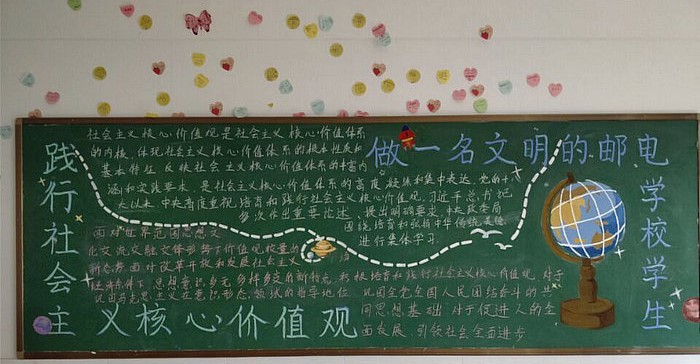 践行社会主义核心价值观
做一名文明的邮电学校学生
社会主义核心价值观是社会主义核心价值体系
的内核，体现社会主义核心价值体系的根本性质和
基本特征，反映社会主义核心价值体系的丰富内
涵和实践要求，是社会主义核心价值体系的高度凝练和集中表达。党的十
八大以来，中央高度重视培育和践行社会主义核心价值观。习近平总书记
多次作出重要论述、提出明确要求，中央政治局
围绕培育和弘扬中华传统美德
进行集体学习。
面对世界范围思想文
化交流交融交锋形势下价值观较量的
新态势，面对改革开放和发展社会主义
经济条件下思想意识多元多样多变的新特点，积极培育和践行社会主义核心价值观，对于
巩固马克思主义在意识形态领域的指导地位 巩固全党全国人民团结奋斗的共
同思想基础，对于促进人的全
面发展、引领社会全面进步